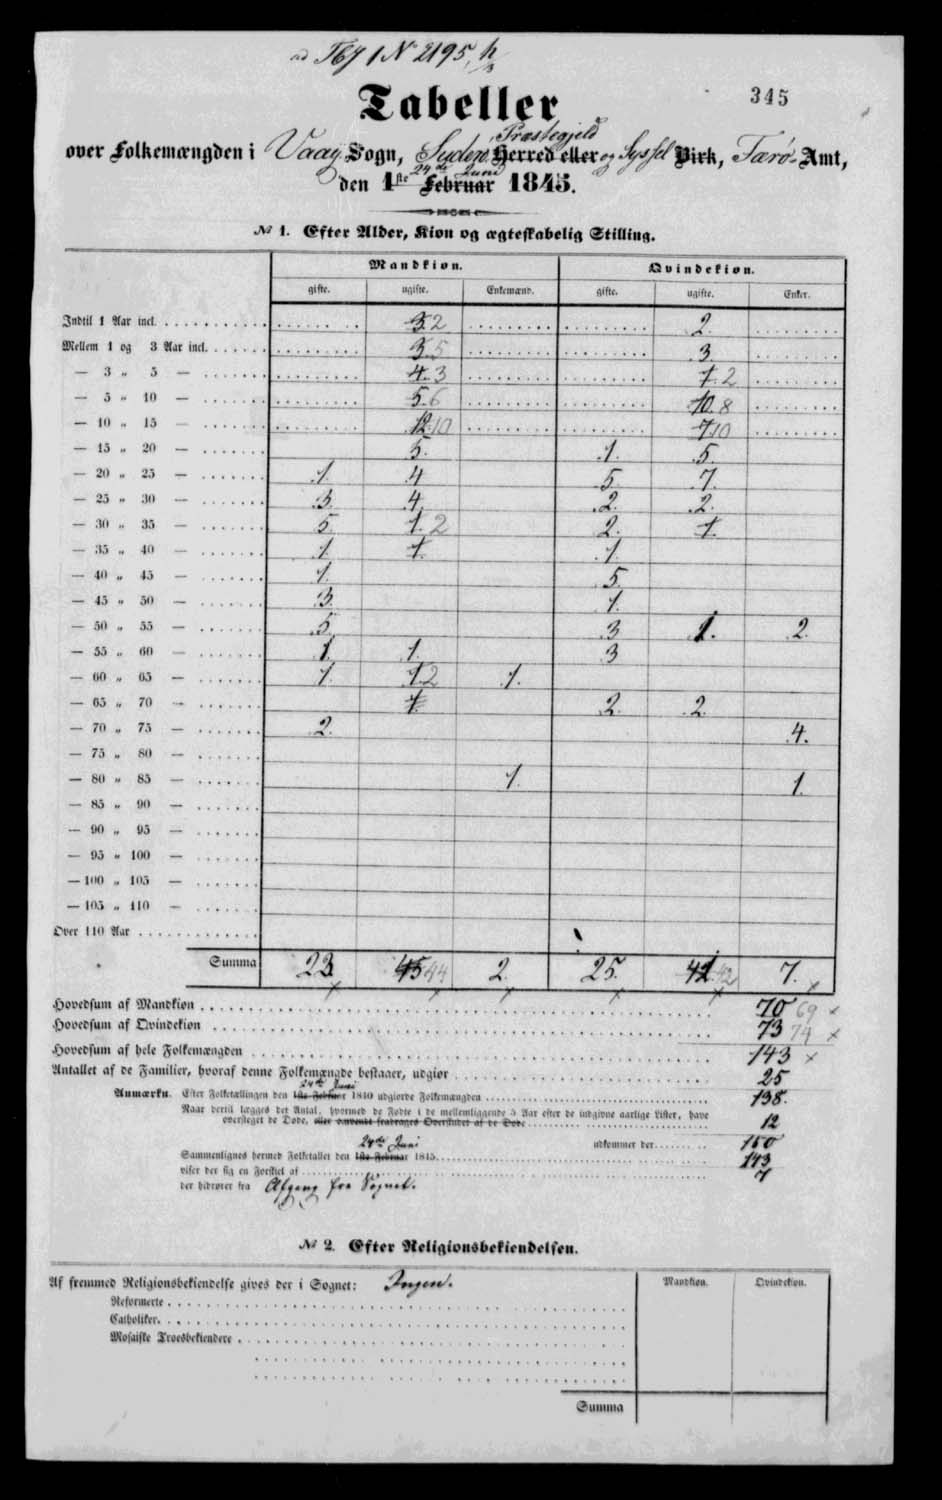 ad Tby 1 No 2195, h/3
345
Tabeller
Præstegjeld
over Folkemængden i Vaag Sogn, Suderø Herred eller og Syssel Birk, Færø Amt,
24de Juni
den 1ste Februar 1845.
No 1. Efter Alder, Kion og ægteskabelig Stilling.
Mandkion. Qvindekion.
gifte. ugifte. Enkemænd. gifte. ugifte. Enker.
Indtil 1 Aar incl. 3. 2 2.
Mellem 1 og 3 Aar incl. 3. 5 3.
— 3 „ 5 — 4. 3 1. 2
— 5 „ 10 — 5. 6 10. 8
— 10 „ 15 — 12. 10 7. 10
— 15 „ 20 — 5. 1. 5.
— 20 „ 25 — 1. 4 5. 7.
— 25 „ 30 — 3. 4. 2. 2.
— 30 „ 35 — 5. 1. 2 2. 1.
— 35 „ 40 — 1. 1. 1.
— 40 „ 45 — 1. 5.
— 45 „ 50 — 3. 1.
— 50 „ 55 — 5. 3 1. 2.
— 55 „ 60 — 1. 1. 3
— 60 „ 65 — 1. 1. 2 1.
— 65 „ 70 — 1. 2. 2.
— 70 „ 75 — 2. 4.
— 75 „ 80 —
— 80 „ 85 — 1. 1.
— 85 „ 90 —
— 90 „ 95 —
— 95 „ 100 —
— 100 „ 105 —
— 105 „ 110 —
Over 110 Aar
Summa 23. 45 44 2. 25. 41. 42 7.
Hovedsum af Mandkion 70 69 ×
Hovedsum af Qvindekion 73 74 ×
Hovedsum af hele Folkemængden 143 ×
Antallet af de Familier, hvoraf denne Folkemængde bestaaer, udgiør 25
24de Juni
Anmærkn. Efter Folketællingen den 1ste Februar 1840 udgiorde Folkemængden 138.
Naar dertil lægges det Antal, hvormed de Fødte i de mellemliggende 5 Aar efter de indgivne aarlige Lister, have
oversteget de Døde, eller omvendt fradrages Overskudet af de Døde 12
udkommer der 150
24de Juni
Sammenlignes hermed Folketallet den 1ste Februar 1845 143
viser der sig en Forskiel af 7
der hidrører fra Afgang fra Sognet.
No 2. Efter Religionsbekiendelsen.
Af fremmed Religionsbekiendelse gives der i Sognet: Ingen. Mandkion. Qvindekion.
Reformerte
Catholiker
Mosaiske Troesbekiendere
Summa